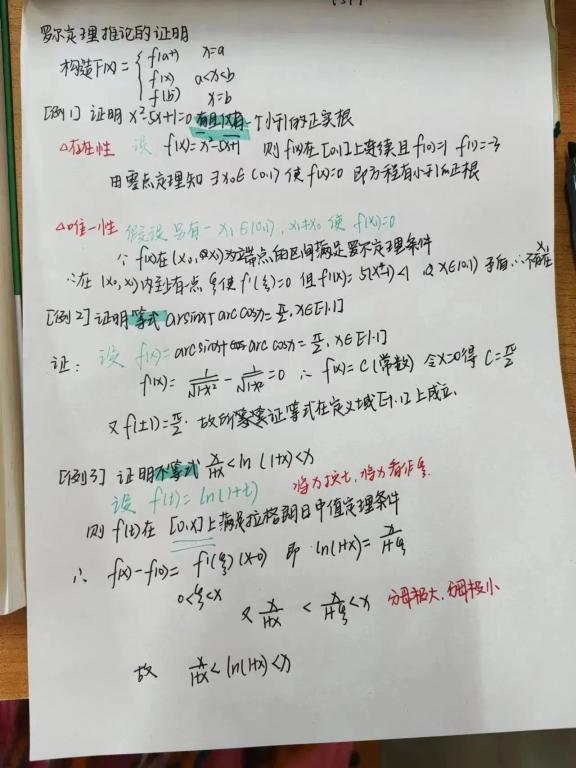 罗尔定理推论的证明
构造F(x)= { f(a+) x=a
f(x) a<x<b
f(b-) x=b
[例1] 证明 x⁵-5x+1=0 有且仅有一个小于1的正实根
△存在性 设 f(x)=x⁵-5x+1 则f(x)在[0,1]上连续且f(0)=1 f(1)=-3
由零点定理知 ∃x₀∈(0,1) 使f(x₀)=0 即方程有小于1的正根
△唯一性 假设另有一x₁∈(0,1), x₁≠x₀ 使 f(x₁)=0
∵ f(x)在(x₀, x₁)为端点的区间满足罗尔定理条件
∴在(x₀, x₁)内至少有一点 ξ使f'(ξ)=0 但f'(x)=5(x⁴-1)<1 x∈(0,1) 矛盾 ∴x₁不存在
[例2] 证明等式 arcsinx+arccosx=π/2, x∈[-1,1]
证: 设 f(x)=arcsinx+arccosx=π/2, x∈[-1,1]
f'(x)= 1/√1-x² - 1/√1-x² =0 ∴ f(x)=C(常数) 令x=0得 C=π/2
又f(±1)=π/2. 故所要证等式在定义域[-1,1]上成立.
[例3] 证明不等式 x/1+x < ln(1+x)<x
设 f(t)=ln(1+t)
则 f(t)在 [0,x]上满足拉格朗日中值定理条件
∴ f(x)-f(0)= f'(ξ)(x-0) 即 ln(1+x)= x/1+ξ
0<ξ<x
又 x/1+x < x/1+ξ < x 分母极大,分母极小
故 x/1+x < ln(1+x)<x